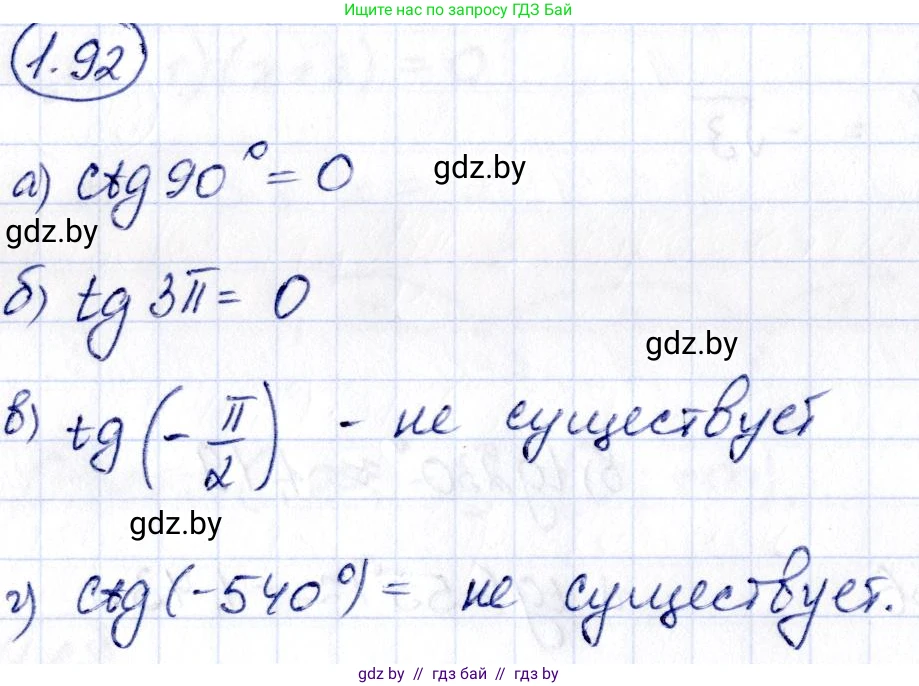 Ищите нас по запросу ГДЗ Бай
1.92
а) ctg 90° = 0
gdz.by
gdz.by
б) tg 3π = 0
gdz.by
в) tg (-π/2) - не существует
gdz.by
г) ctg (-540°) = не существует.
gdz.by // гдз бай // гдз by